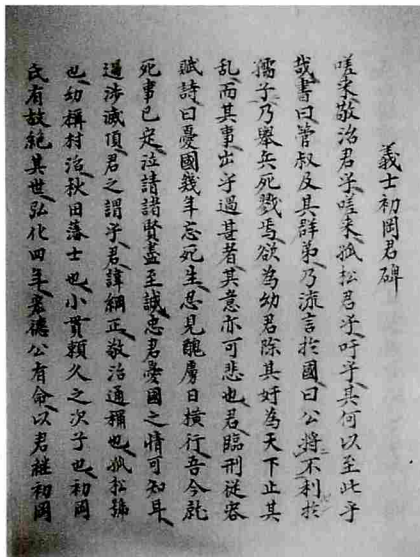 義士初岡君碑
嗟来敬治君乎嗟来孤松君乎吁乎其何以至此乎
哉書曰管叔及其群弟乃流言於國曰公将不利於
孺子乃舉兵死戮焉欲為幼君除其奸為天下止其
乱而其事出乎過甚者其意亦可悲也君臨刑従容
賦詩曰憂國幾年忘死生忍見醜虜日横行吾今就
死事已定泣請諸賢盡至誠忠君憂國之情可知耳
過渉滅頂君之謂乎君諱綱正敬治通稱也孤松號
也幼稱村治秋田藩士也小貫頼久之次子也初岡
氏有故絶其世弘化四年德公有命以君継初岡